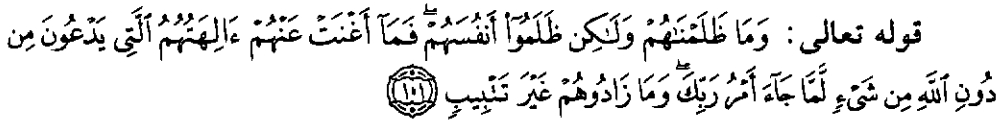 قوله تعالى: وَمَا ظَلَمْنَٰهُمْ وَلَٰكِن ظَلَمُوٓا۟ أَنفُسَهُمْ ۖ فَمَآ أَغْنَتْ عَنْهُمْ ءَالِهَتُهُمُ ٱلَّتِى يَدْعُونَ مِن
دُونِ ٱللَّهِ مِن شَىْءٍ لَّمَّا جَآءَ أَمْرُ رَبِّكَ ۖ وَمَا زَادُوهُمْ غَيْرَ تَتْبِيبٍ ١٠١